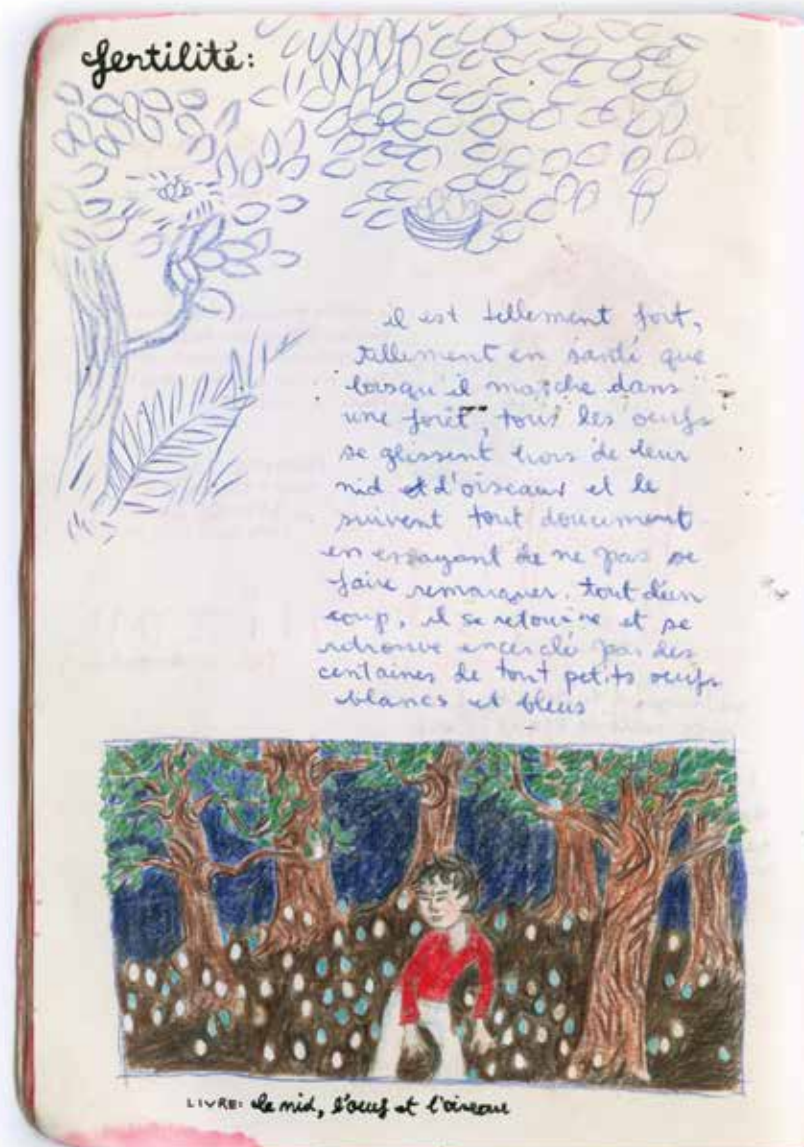 fertilité:
il est tellement fort,
tellement en santé que
lorsqu'il marche dans
une forêt, tous les oeufs
se glissent hors de leur
nid et d'oiseaux et le
suivent tout doucement
en essayant de ne pas se
faire remarquer. tout d'un
coup, il se retourne et se
retrouve encerclé par des
centaines de tout petits oeufs
blancs et bleus
LIVRE: le nid, l'oeuf et l'oiseau